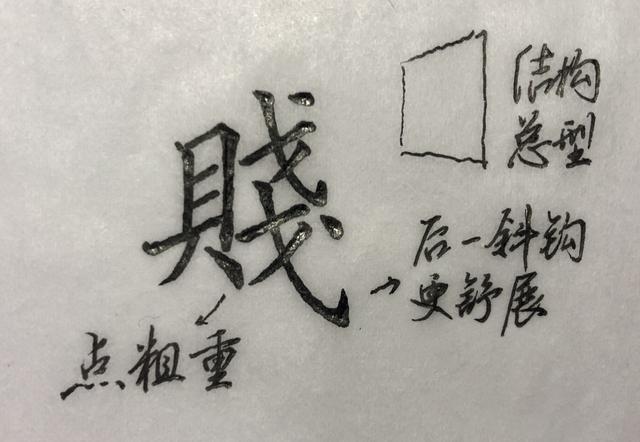 賤
结构
总型
后一斜钩
更舒展
点粗重